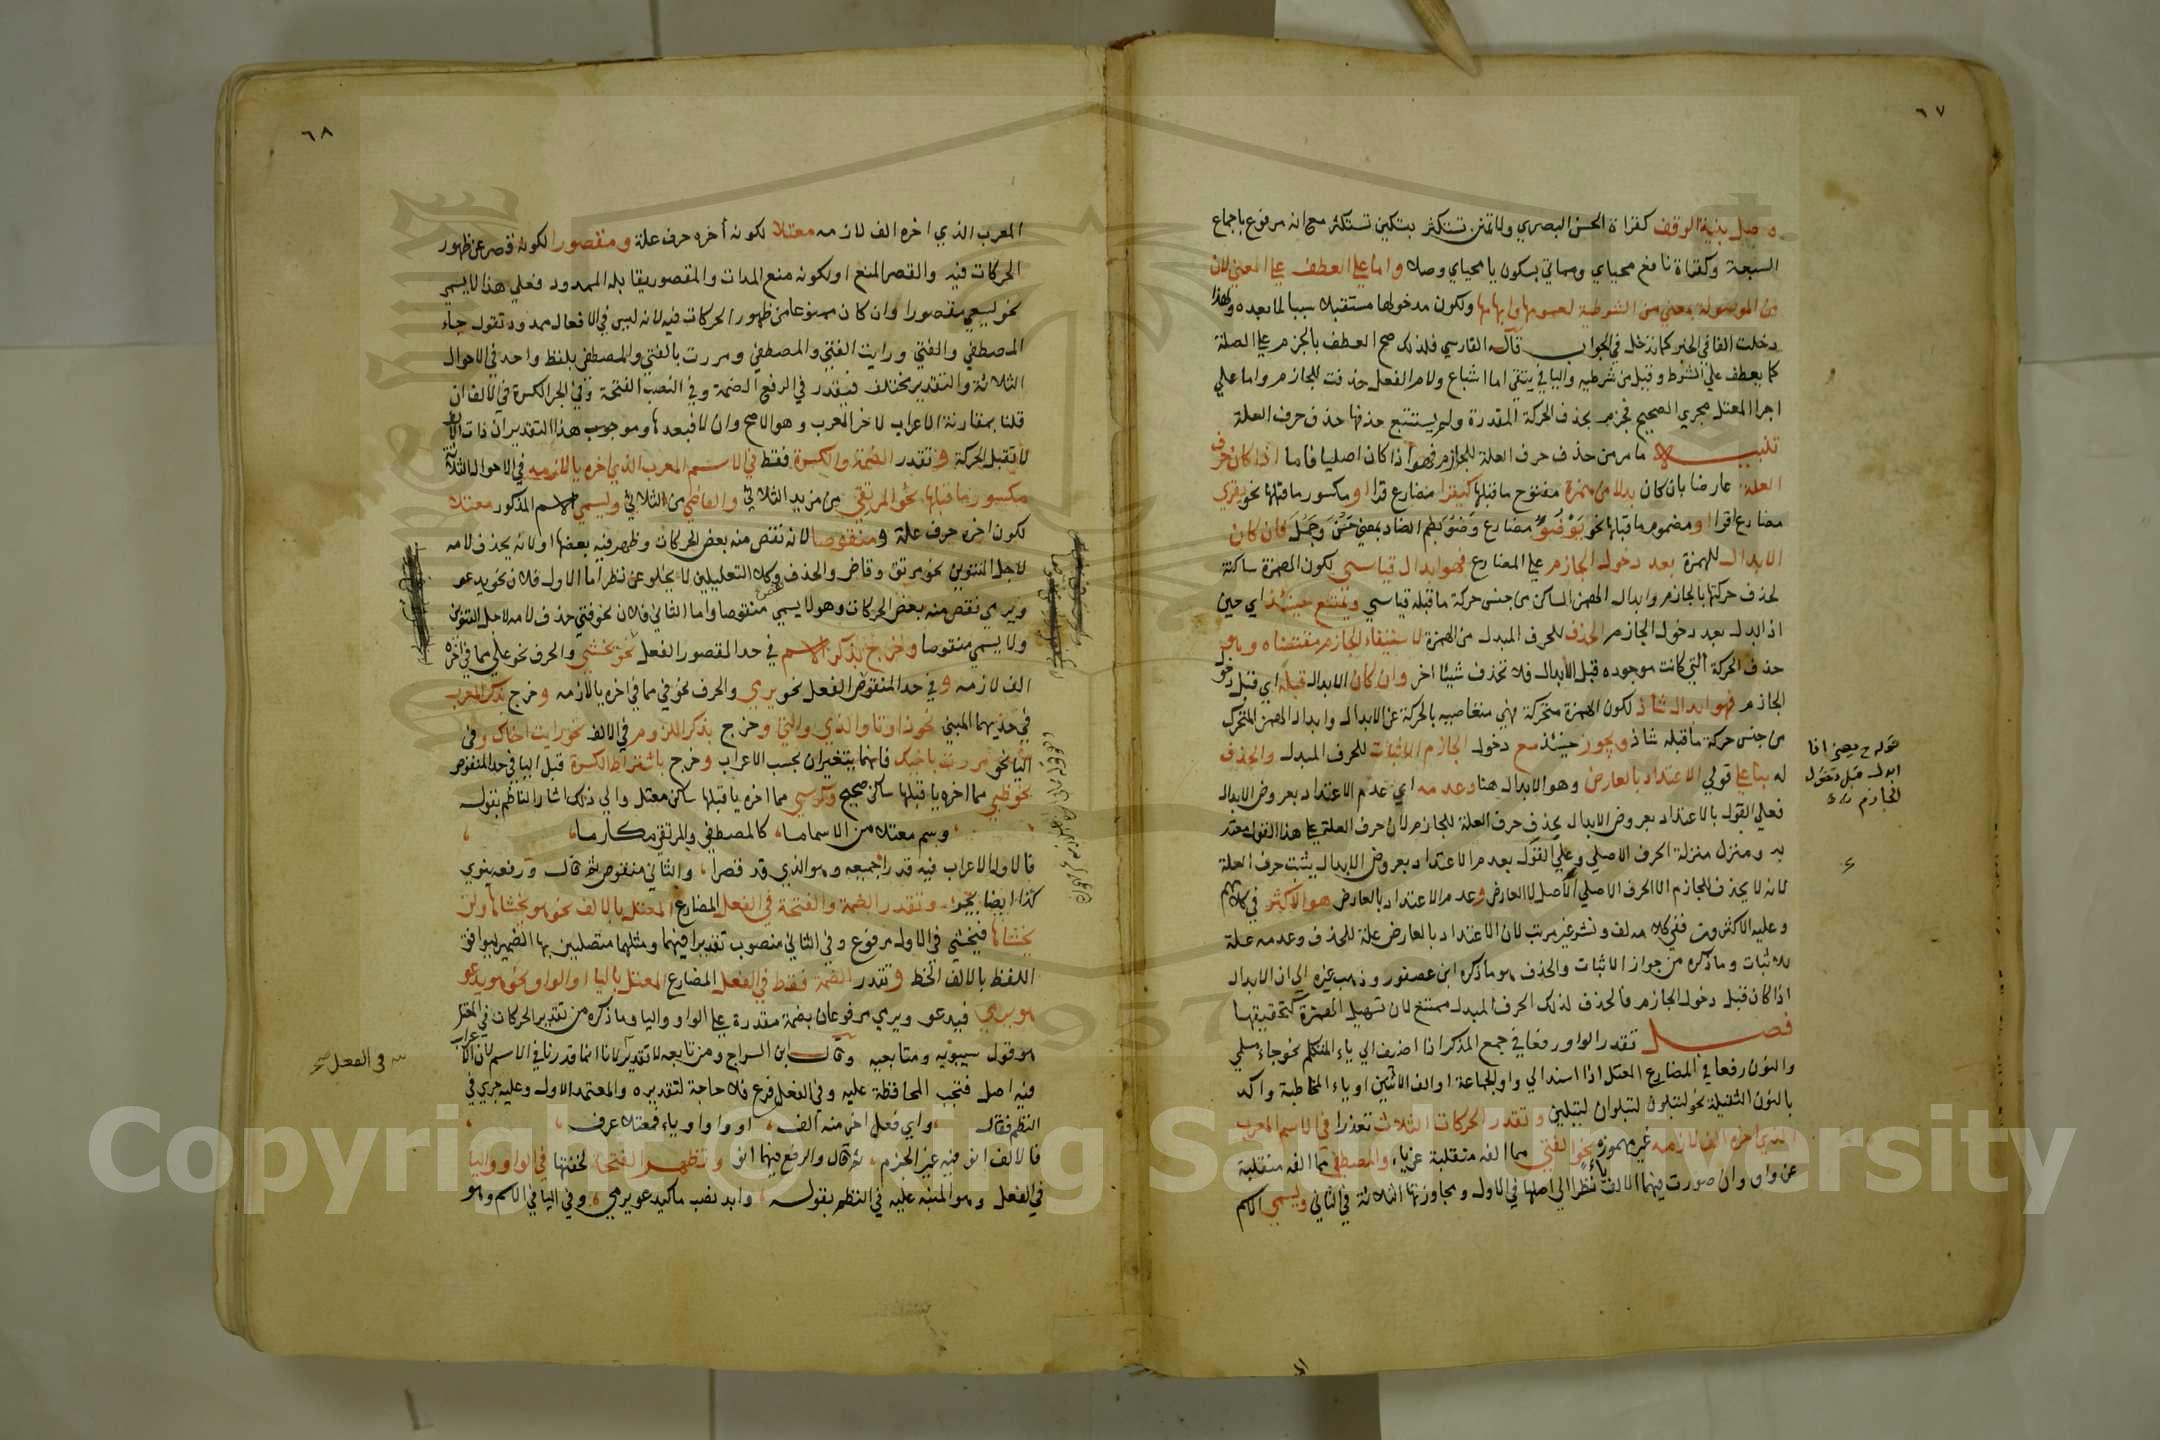 ٦٧
وصل بنية الوقف كقراءة الحسن البصري ولا تمنن تستكثر بتسكين تستكثر مع انه مرفوع باجماع
السبعة وكقراءة نافع محياي ومماتي بسكون يا محياي وصلا واما على العطف على المعنى لان
من الموصولة بمعنى من الشرطية لعمومها وابهامها ولكون مدخولها مستقبلا سببا لما بعده ولهذا
دخلت الفا في الخبر كما تدخل في الجواب قال الفارسي فلذلك صح العطف بالجزم على الصلة
كما يعطف على الشرط وقيل من شرطيه واليا في يتقي اما اشباع ولام الفعل حذفت للجازم واما على
اجرا المعتل مجري الصحيح فجزم بحذف الحركة المقدرة ولم يستتبع حذفها حذف حرف العلة
تنبيه ما مر من حذف حرف العلة للجازم فهو اذا كان اصليا فاما اذا كان حرف
العلة عارضا بان كان بدلا من همزة مفتوح ما قبلها كيقرا مضارع قرا او مكسور ما قبلها نحو يقري
مضارع اقرا او مضموم ما قبلها نحو يوضو مضارع وضو بضم الضاد بمعنى حسن وجمل فان كان
الابدال للهمزة بعد دخول الجازم على المضارع فهو ابدال قياسي لكون الهمزة ساكنة
لحذف حركتها بالجازم وابدال الهمز الساكن من جنس حركة ما قبله قياسي ويمتنع حينئذ اي حين
اذ ابدل بعد دخول الجازم الحذف للحرف المبدل من الهمزة لاستيفاء الجازم مقتضاه وهو
حذف الحركة التي كانت موجوده قبل الابدال فلا تحذف شيئا اخر وان كان الابدال قبله اي قبل دخول
الجازم فهو ابدال شاذ لكون الهمزة متحركة فهي متعاصيه بالحركة عن الابدال وابدال الهمز المتحرك
من جنس حركة ما قبله شاذ ويجوز حينئذ مع دخول الجازم الاثبات للحرف المبدل والحذف
له بنا على قولي الاعتداد بالعارض وهو الابدال هنا وعدمه اي عدم الاعتداد بعروض الابدال
فعلى القول بالاعتداد بعروض الابدال يحذف حرف العلة للجازم لان حرف العلة على هذا القول معتد
به ومنزل منزلة الحرف الاصلي وعلى القول بعدم الاعتداد بعروض الابدال يثبت حرف العلة
لانه لا يحذف للجازم الا الحرف الاصلي الاصل لا العارض وعدم الاعتداد بالعارض هو الاكثر في كلامهم
وعليه الاكثرون ففي كلامه لف ونشر غير مرتب لان الاعتداد بالعارض علة للحذف وعدمه علة
للاثبات وما ذكره من جواز الاثبات والحذف هو ما ذكره ابن عصفور وذهب غيره الى ان الابدال
اذا كان قبل دخول الجازم فالحذف لذلك الحرف المبدل ممتنع لان تسهيل الهمزة كتحقيقها
فصل تقدر الواو رفعا في جمع المذكر اذا اضيف الى ياء المتكلم نحو جاء مسلمي
والنون رفعا في المضارع المعتل اذا اسند الى واو الجماعة او الف الاثنين او ياء المخاطبة واكد
بالنون الثقيلة نحو لتبلون لتبلوان لتبلين وتقدر الحركات الثلاث تعذرا في الاسم المعرب
الذي اخره الف لازمه غير مهموزه نحو الفتى مما الفه منقلبة عن ياء والمصطفى مما الفه منقلبة
عن واو وان صورت فيهما الالف ياء نظرا الى اصلها في الاول ومجاوزتها الثلاثة في الثاني ويسمى الاسم
قوله ح يعني اذا
ابدل قبل دخول
الجازم
٦٨
المعرب الذي اخره الف لازمه معتلا لكونه أخره حرف علة ومقصورا لكونه قصر عن ظهور
الحركات فيه والقصر المنع او لكونه منع المدات والمقصور يقابله الممدود فعلى هذا لا يسمى
نحو يسعى مقصورا وان كان ممنوعا من ظهور الحركات فيه لانه ليس في الافعال ممدود تقول جاء
المصطفى والفتى ورايت الفتى والمصطفى ومررت بالفتى والمصطفى بلفظ واحد في الاحوال
الثلاثة والتقدير مختلف فيقدر في الرفع الضمة وفي النصب الفتحة وفي الجر الكسرة في الالف ان
قلنا بمقارنة الاعراب لاخر المعرب وهو الاصح وان لا فبعدها وموجوب هذا التقدير ان ذات الالف
لا تقبل الحركة وتقدر الضمة والكسرة فقط في الاسم المعرب الذي اخره يا لازمه في الاحوال الثلاثة
مكسور ما قبلها نحو المرتقي من مزيد الثلاثي والقاضي من الثلاثي ويسمى الاسم المذكور معتلا
لكون اخره حرف علة ومنقوصا لانه نقص منه بعض الحركات وظهر فيه بعضها او لانه يحذف لامه
لاجل التنوين نحو مرتق وقاض والحذف وكلا التعليلين لا يخلو عن نظر اما الاول فلان نحو يدعو
ويرمي نقص منه بعض الحركات وهو لا يسمى منقوصا واما الثاني فلان نحو فتى حذف لامه لاجل التنوين
ولا يسمى منقوصا وخرج بذكر الاسم في حد المقصور الفعل نحو يخشى والحرف نحو على مما في اخره
الف لازمه وفي حد المنقوص الفعل نحو يرمي والحرف نحو في مما في اخره يا لازمه وخرج بذكر المعرب
في حديهما المبني نحو ذا وتا والذي والتي وخرج بذكر اللزوم في الالف نحو رايت اخاك وفي
اليا نحو مررت باخيك فانهما يتغيران بحسب الاعراب وخرج باشتراط الكسرة قبل اليا في حد المنقوص
نحو ظبي مما اخره يا قبلها ساكن صحيح وكرسي مما اخره يا قبلها ساكن معتل والى ذلك اشار الناظم بقوله
وسم معتلا من الاسما ما، كالمصطفى والمرتقي مكارما،
فالاول الاعراب فيه قدرا جميعه وهو الذي قد قصرا، والثاني منقوص ثم قال ورفعه ينوي
كذا ايضا يجر، وتقدر الضمة والفتحة في الفعل المضارع المعتل بالالف نحو هو يخشاها ولن
يخشاها فيخشى في الاول مرفوع وفي الثاني منصوب تقديرا فيهما ومثلهما متصلين بها الضمير ليوافق
اللفظ بالالف الخط وتقدر الضمة فقط في الفعل المضارع المعتل باليا او الواو نحو هو يدعو
هو يرمي فيدعو ويرمي مرفوعان بضمة مقدرة على الواو واليا وما ذكره من تقدير الحركات في المعتل
هو قول سيبويه ومتابعيه وقال ابن السراج ومن تابعه لا تقدير لانا انما قدرنا في الاسم لان الاعراب
فيه اصل فتجب المحافظة عليه وفي الفعل فرع فلا حاجة لتقديره والمعتمد الاول وعليه جرى في
النظم فقال، واي فعل اخر منه الف، او واو او ياء فمعتلا عرف،
فالالف انو فيه غير الجزم، ثم قال والرفع فيهما انو وتظهر الفتحة لخفتها في الواو واليا
في الفعل وهو المنبه عليه في النظم بقوله، وابد نصب ما كيدعو يرمي، وفي اليا في الاسم وهو
في الفعل صح
Copyright © King Saud University
1957